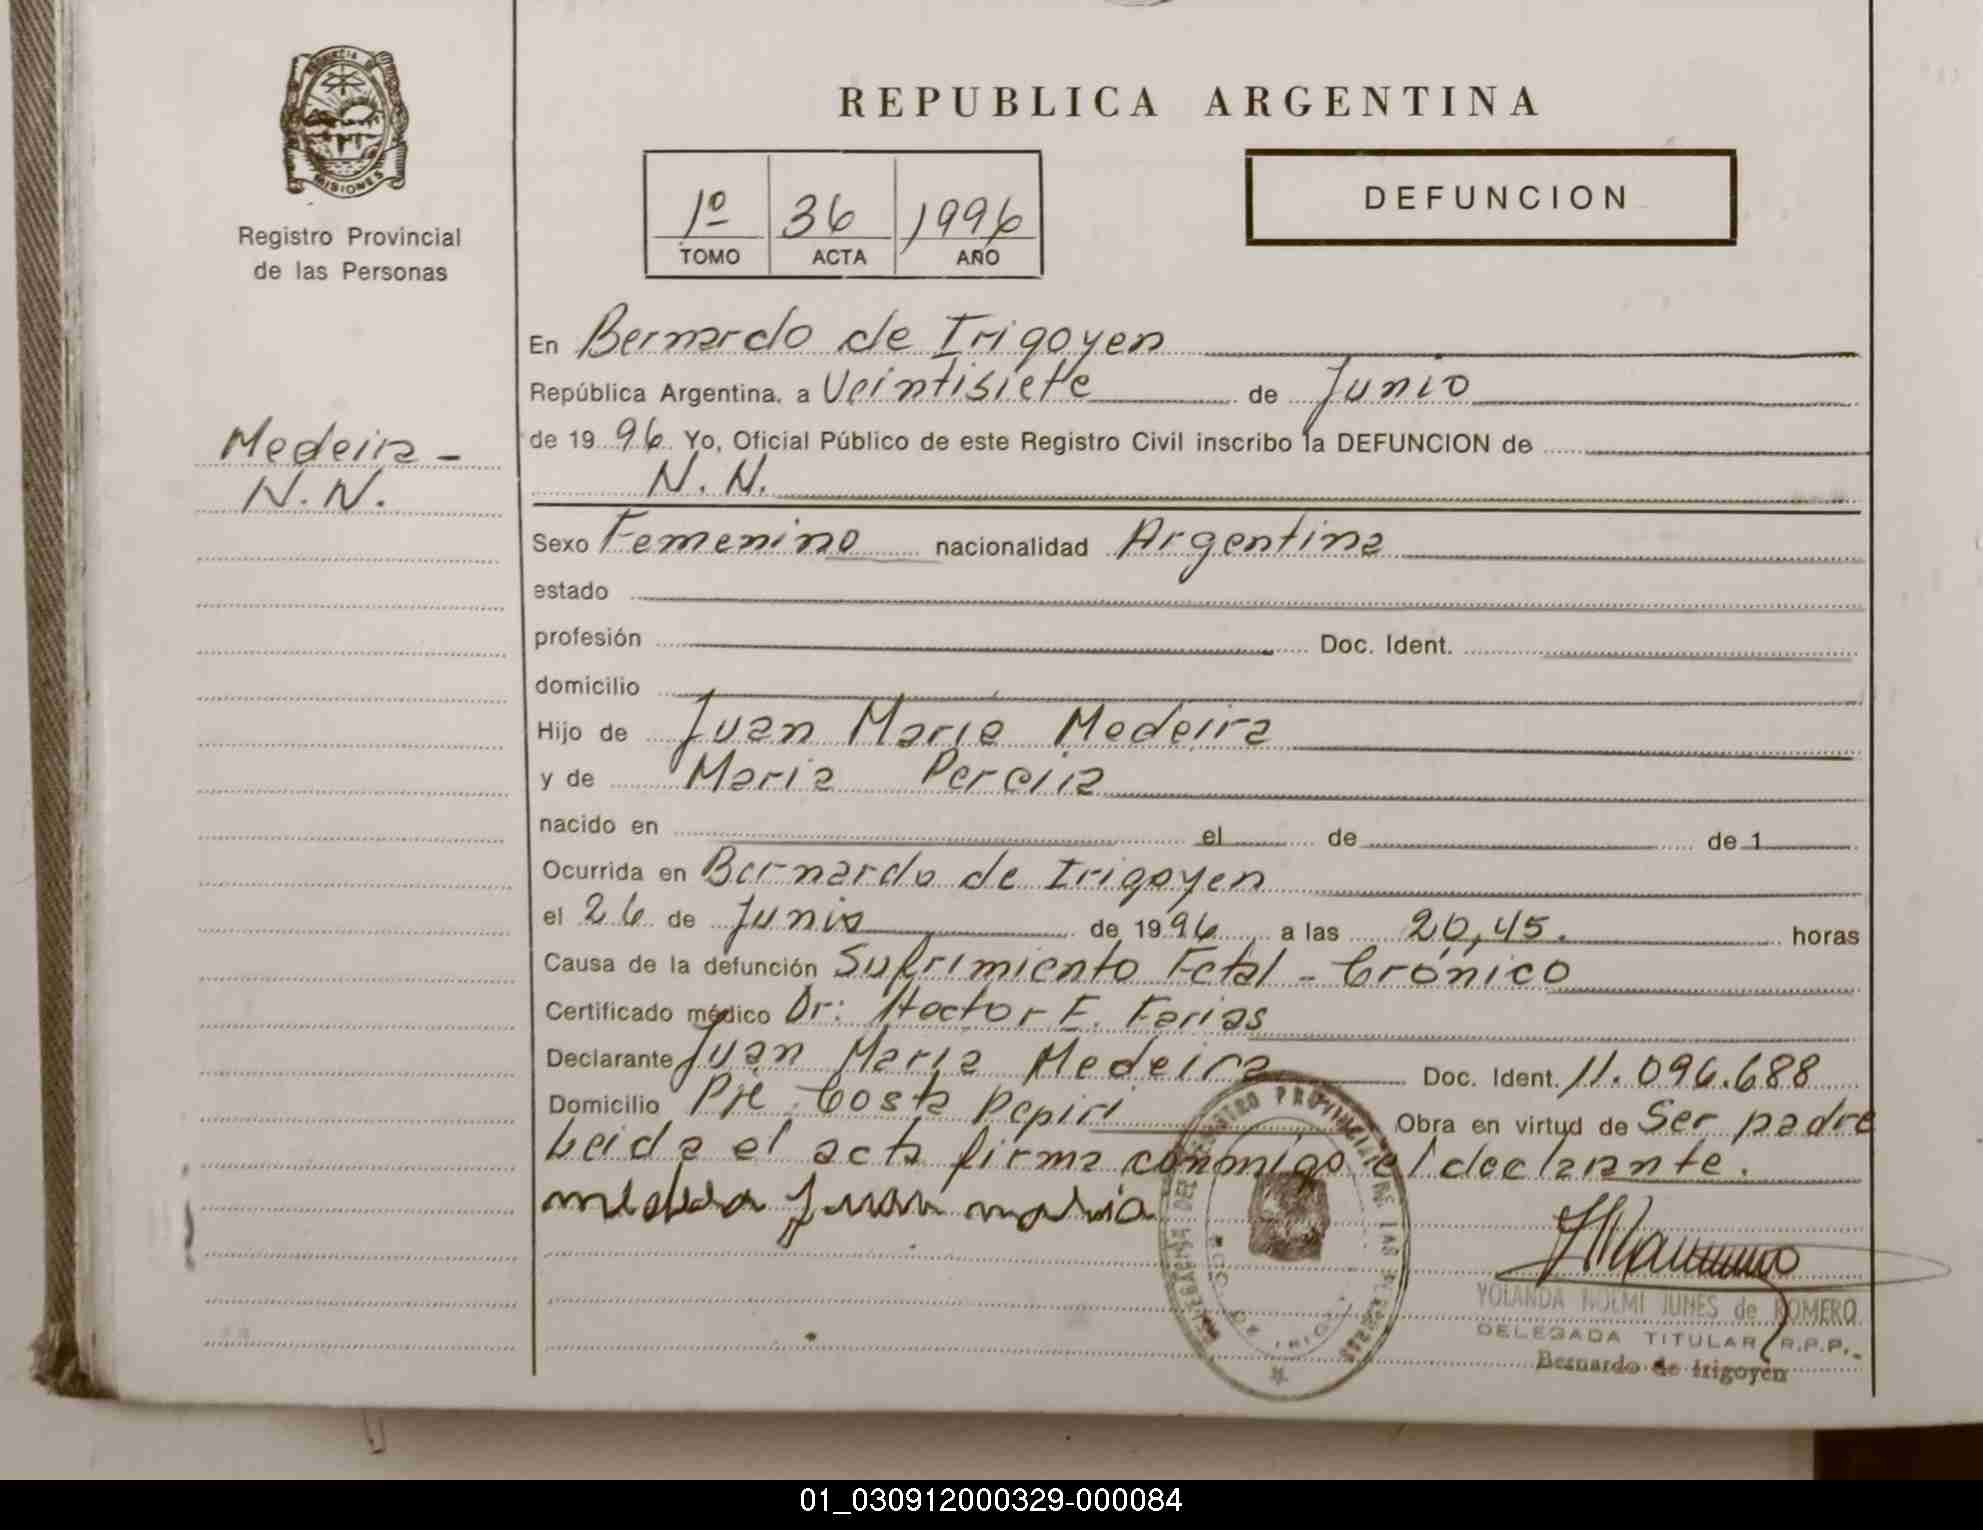 PROVINCIA DE
MISIONES
Registro Provincial
de las Personas
Medeira -
N. N.
REPUBLICA ARGENTINA
1º 36 1996
TOMO ACTA AÑO
DEFUNCION
En Bernardo de Irigoyen
República Argentina, a Veintisiete de Junio
de 19 96 Yo, Oficial Público de este Registro Civil inscribo la DEFUNCION de
N. N.
Sexo Femenino nacionalidad Argentina
estado
profesión Doc. Ident.
domicilio
Hijo de Juan Maria Medeira
y de Maria Pereira
nacido en el de de 1
Ocurrida en Bernardo de Irigoyen
el 26 de Junio de 19 96 a las 20,45. horas
Causa de la defunción Sufrimiento Fetal - Crónico
Certificado médico Dr: Hector E. Farias
Declarante Juan Maria Medeira Doc. Ident. 11.096.688
Domicilio Pje Costa Pepiri Obra en virtud de Ser padre
Leida el acta firma conmigo el declarante.
Juan maria
YOLANDA NOEMI JUNES de ROMERO
DELEGADA TITULAR R.P.P.
Bernardo de Irigoyen
01_030912000329-000084